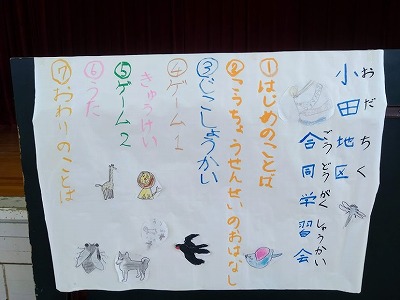 おだちく
小田地区
ごうどうがくしょうかい
合同学習会
①はじめのことば
②こうちょうせんせいのおはなし
③じこしょうかい
④ゲーム1
きゅうけい
⑤ゲーム2
⑥うた
⑦おわりのことば